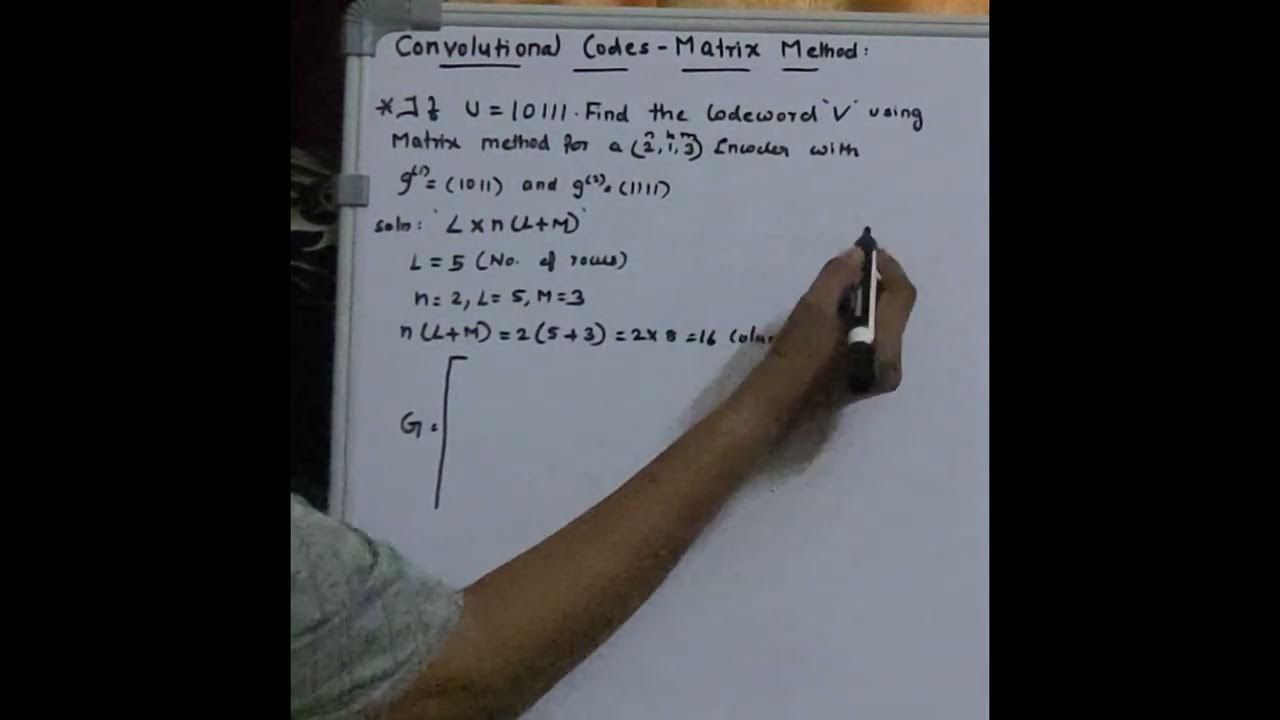 Convolutional Codes - Matrix Method:
* If U = 10111. Find the Codeword 'V' using
n k m
Matrix method for a (2, 1, 3) Encoder with
g⁽¹⁾ = (1011) and g⁽²⁾ = (1111)
soln: 'L x n (L+M)'
L = 5 (No. of rows)
n = 2, L = 5, M = 3
n (L+M) = 2 (5+3) = 2 x 8 = 16
G =